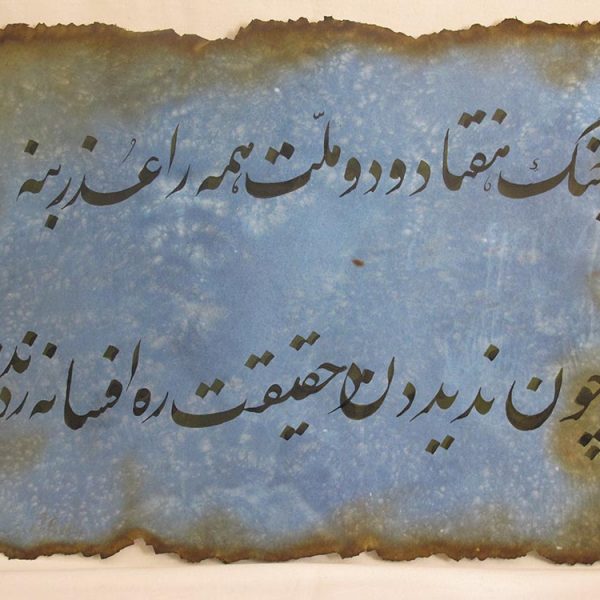 جنگ هفتاد و دو ملّت همه را عُذر بنه
چون ندیدند حقیقت ره افسانه زدند